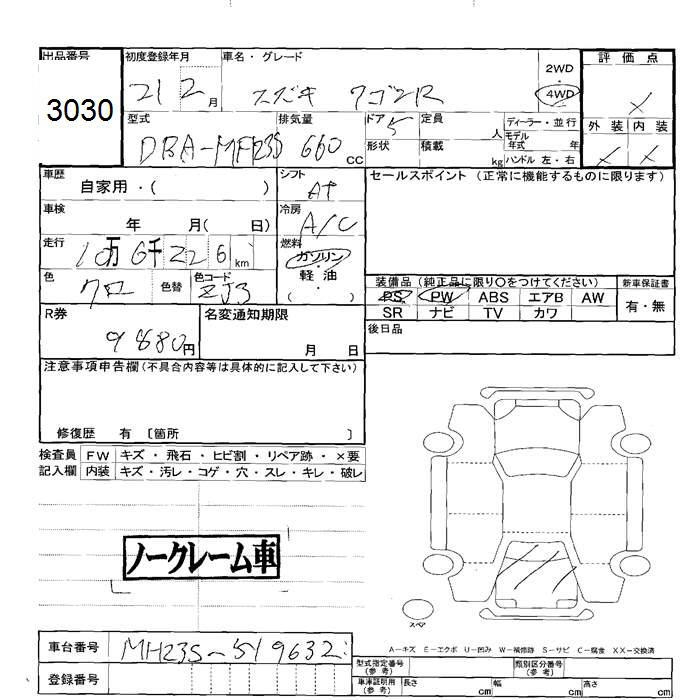 出品番号 初度登録年月 車名・グレード 2WD・4WD 評価点
3030 21 2月 スズキ ワゴンR ×
型式 排気量 ドア 定員 ディーラー・並行 外装 内装
DBA-MH23S 660cc 5 人 モデル年式 年 × ×
形状 積載 kg ハンドル 左・右
車歴 シフト セールスポイント (正常に機能するものに限ります)
自家用・( ) AT
車検 冷房
年 月( 日) A/C
走行 燃料
10万6千226km ガソリン・軽油・( )
色 色替 色コード 装備品 (純正品に限り〇をつけてください) 新車保証書
クロ ZJ3 PS PW ABS エアB AW 有・無
SR ナビ TV カワ
R券 名変通知期限 後日品
9880円 月 日
注意事項申告欄(不具合内容等は具体的に記入して下さい)
修復歴 有 〔箇所 〕
検査員 FW キズ・飛石・ヒビ割・リペア跡・×要
記入欄 内装 キズ・汚レ・コゲ・穴・スレ・キレ・破レ
ノークレーム車
スペア
A-キズ E-エクボ U-凹み W-補修跡 S-サビ C-腐食 XX-交換済
車台番号 MH23S-519632
登録番号
型式指定番号(参考) 類別区分番号(参考)
車庫証明用(参考) 長さ cm 幅 cm 高さ cm